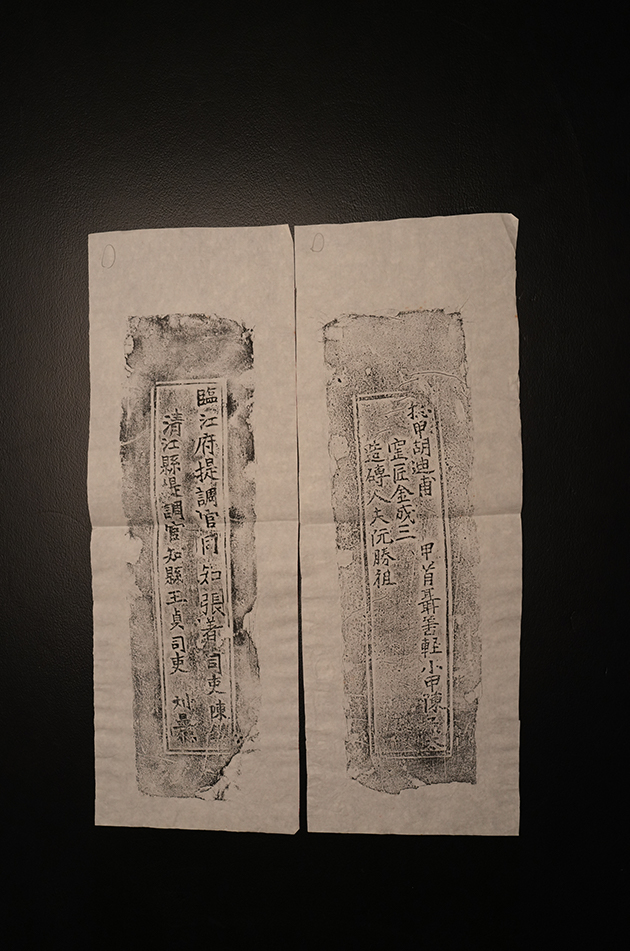 甲胡迪甫 甲首聶善軽小甲陳
窑匠金成三
造磚人夫阮勝祖
臨江府提調官同知張著司吏陳
清江縣提調官知縣王貞司吏 刘